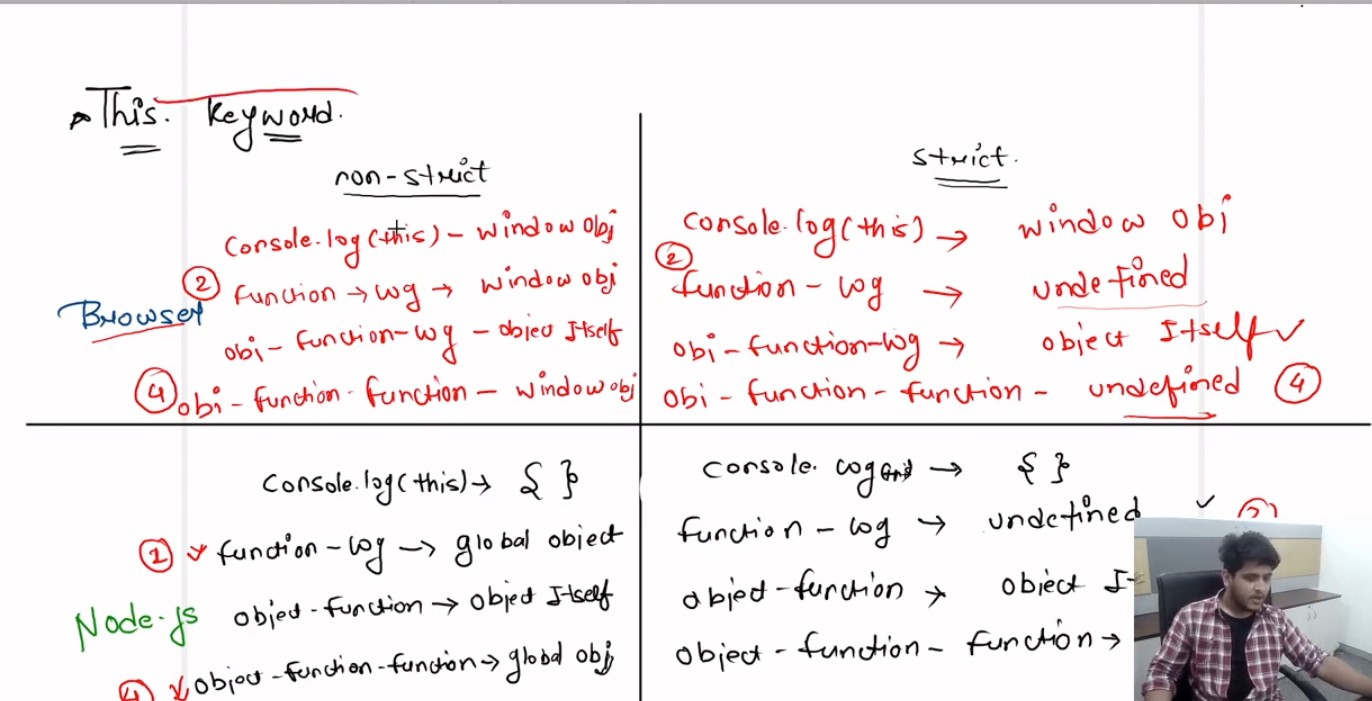 This. Keyword.
non-strict
Console.log(this) - window obj
② function → log → window obj
obj - function - log - object Itself
④ obj - function - function - window obj
Browser
strict.
console.log(this) → window obj
② function - log → undefined
obj - function - log → object Itself ✓
obj - function - function - undefined ④
Console.log(this) → { }
② function - log → global object
object - function → object Itself
④ object - function - function → global obj
Node.js
console.log → { }
function - log → undefined ✓
object - function → object
object - function - function →